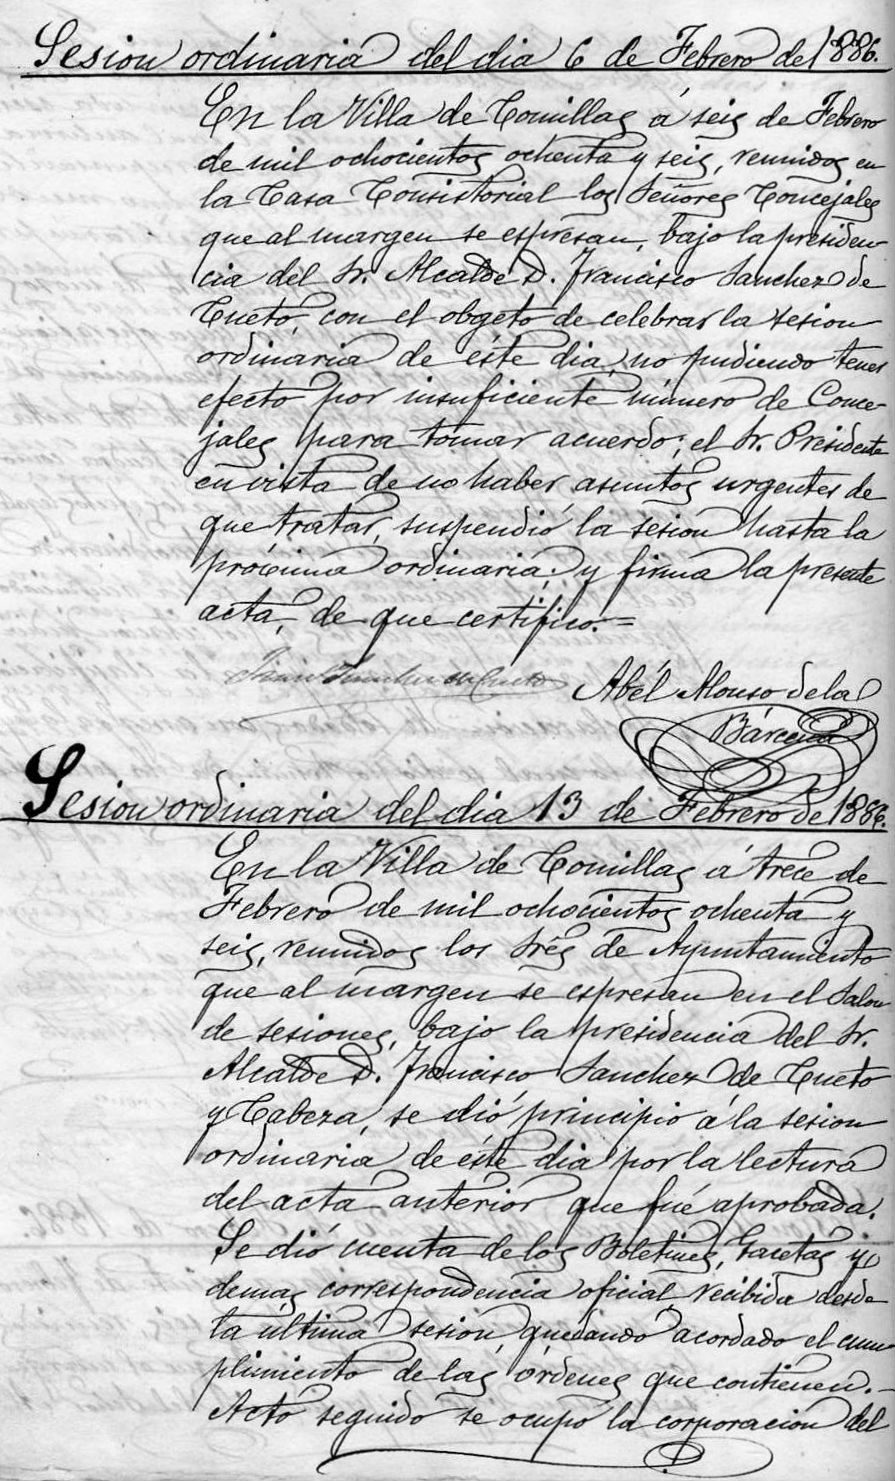 Sesion ordinaria del dia 6 de Febrero de 1886.
En la Villa de Comillas á seis de Febrero
de mil ochocientos ochenta y seis, reunidos en
la Casa Consistorial los Señores Concejales
que al margen se espresan, bajo la presiden-
cia del Sr. Alcalde D. Francisco Sanchez de
Cueto, con el obgeto de celebrar la sesion
ordinaria de éste dia, no pudiendo tener
efecto por insuficiente número de Conce-
jales para tomar acuerdo; el Sr. Presidente
en vista de no haber asuntos urgentes de
que tratar, suspendió la sesion hasta la
próxima ordinaria; y firma la presente
acta, de que certifico.=
Sanchez de Cueto
Abél Alonso de la
Bárcena
Sesion ordinaria del dia 13 de Febrero de 1886.
En la Villa de Comillas á trece de
Febrero de mil ochocientos ochenta y
seis, reunidos los Srés de Ayuntamiento
que al margen se espresan en el Salon
de sesiones, bajo la presidencia del Sr.
Alcalde D. Francisco Sanchez de Cueto
y Cabeza, se dió principio á la sesion
ordinaria de éste dia por la lectura
del acta anterior que fué aprobada.
Se dió cuenta de los Boletines, Gacetas y
demas correspondencia oficial recibida desde
la última sesion quedando acordado el cum
plimiento de las órdenes que contienen.-
Acto seguido se ocupó la corporacion del